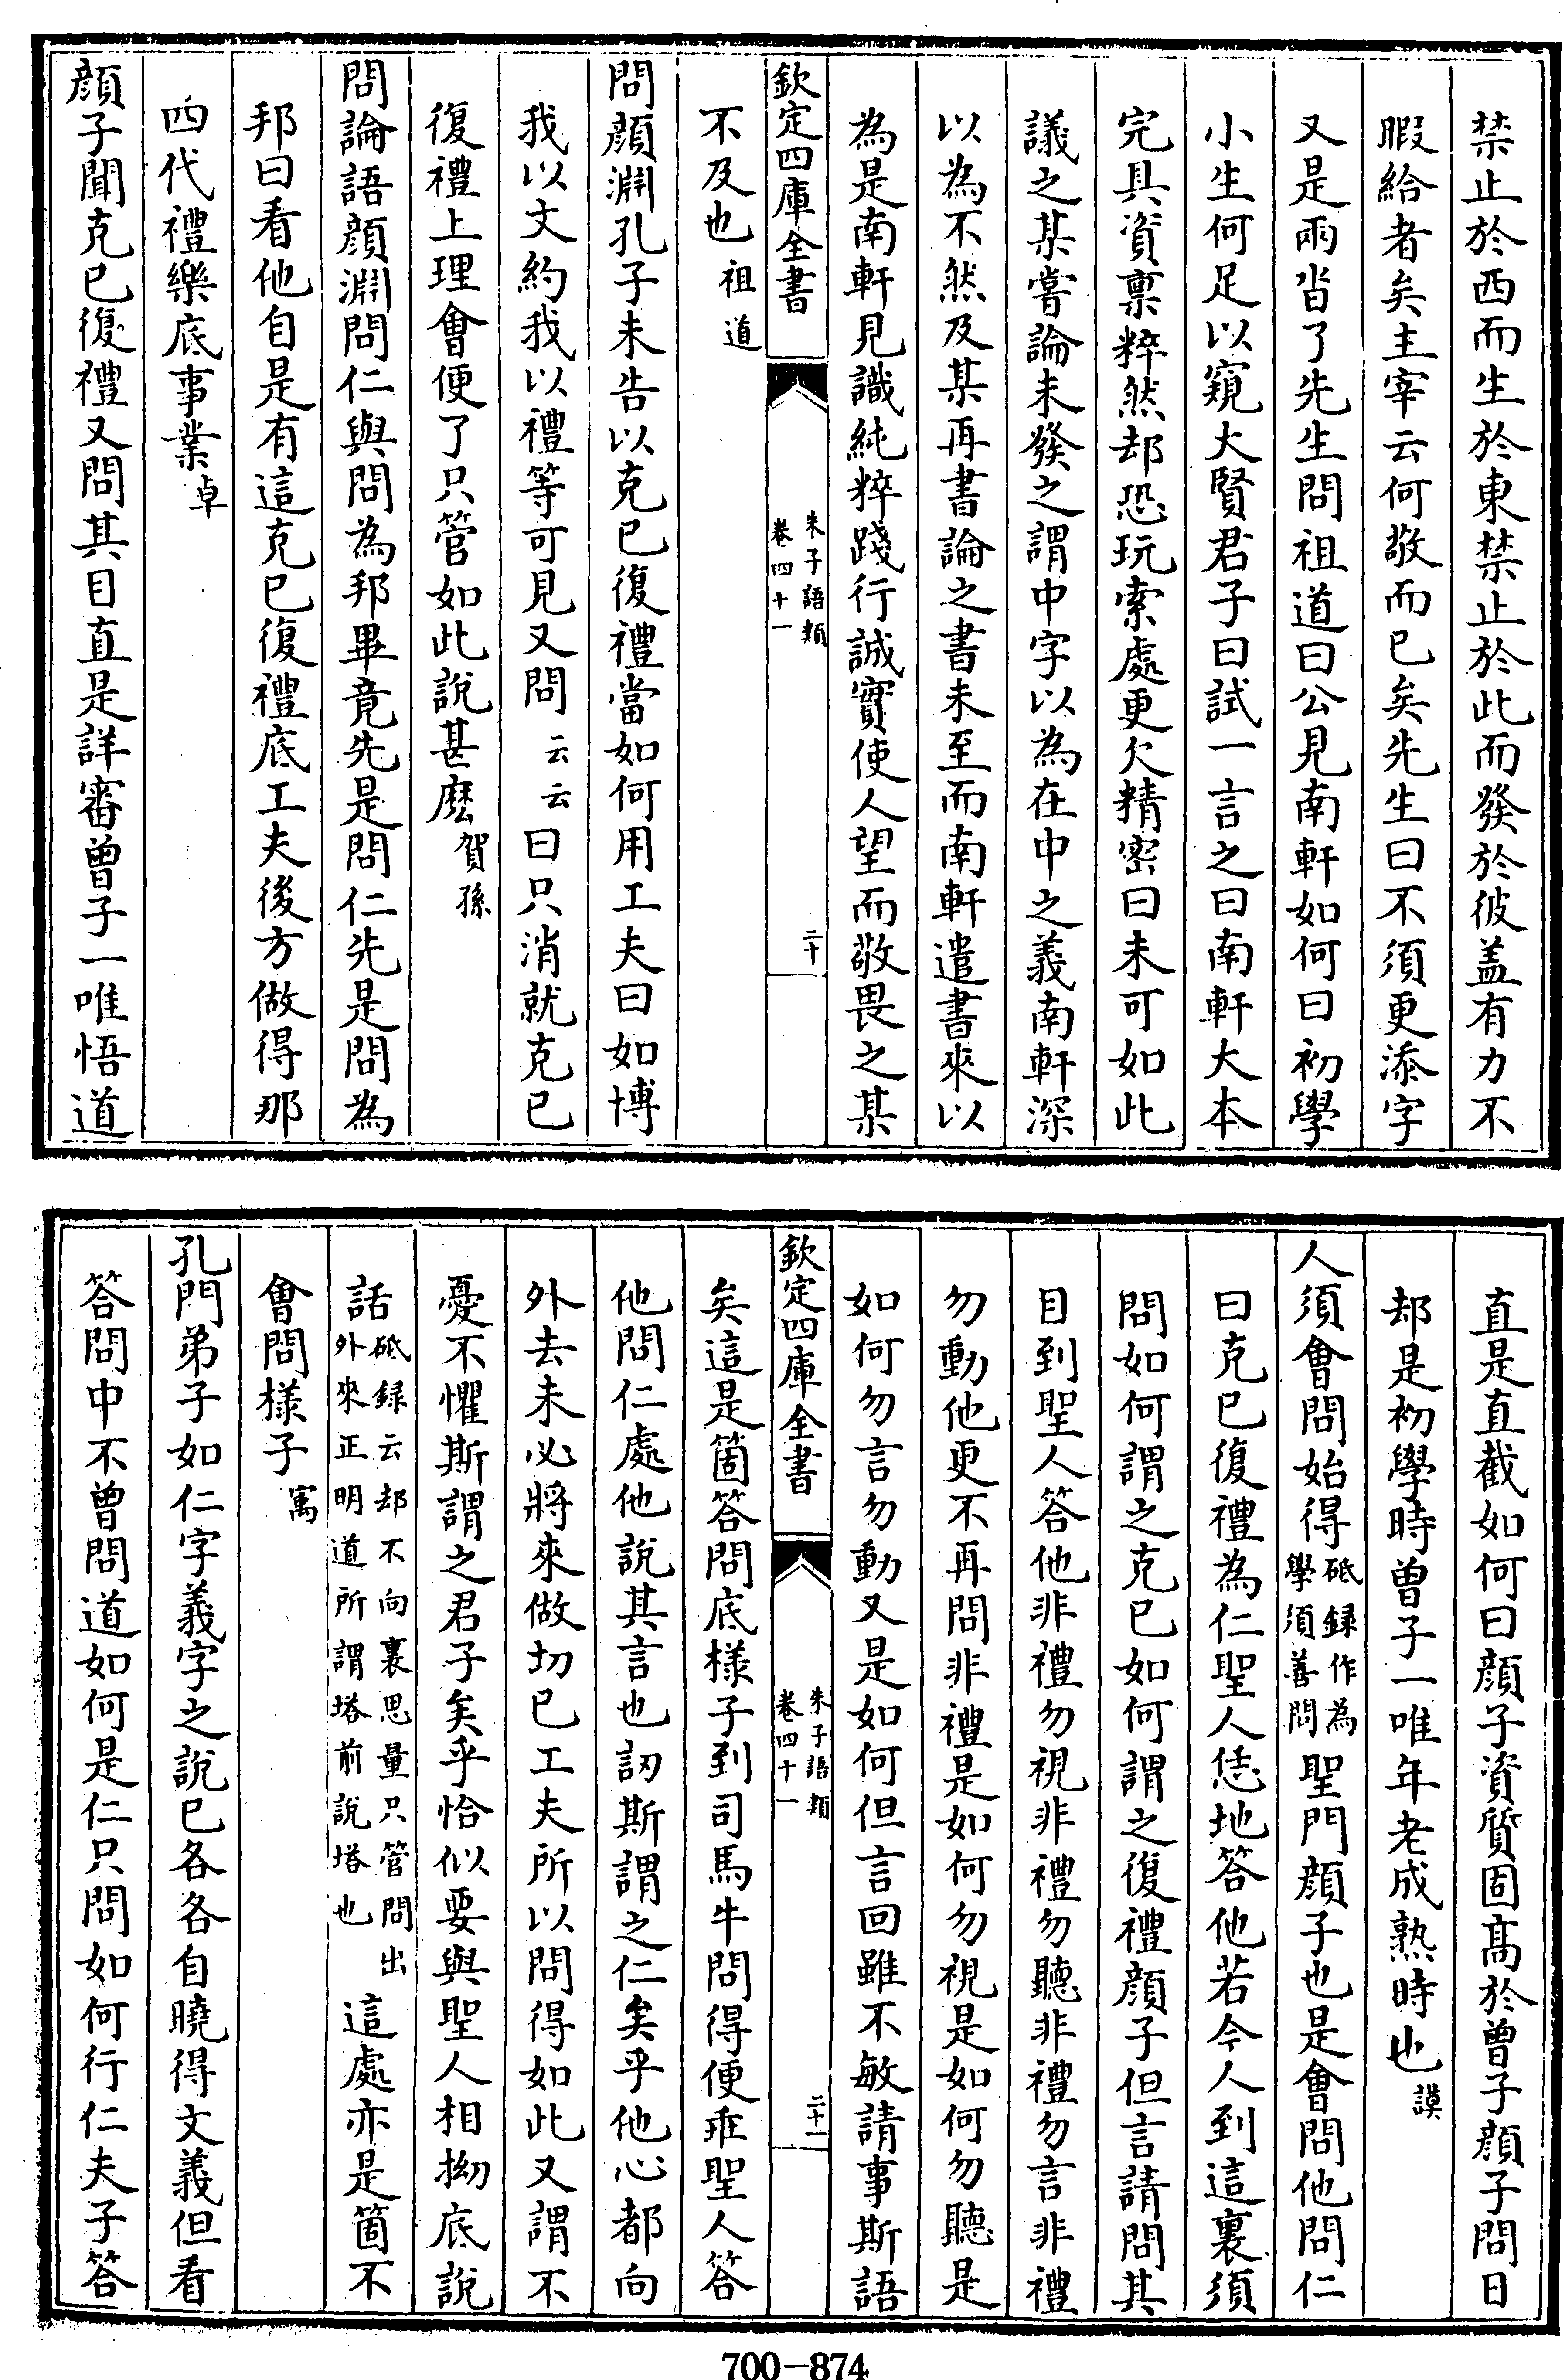 禁止於西而生於東禁止於此而發於彼盖有力不
暇給者矣主宰云何敬而已矣先生曰不須更添字
又是兩沓了先生問祖道曰公見南軒如何曰初學
小生何足以窺大賢君子曰試一言之曰南軒大本
完具資稟粹然却恐玩索處更欠精密曰未可如此
議之某嘗論未發之謂中字以為在中之義南軒深
以為不然及某再書論之書未至而南軒遣書來以
為是南軒見識純粹踐行誠實使人望而敬畏之某
欽定四庫全書
朱子語類
卷四十一
二十
不及也祖道
問顔淵孔子未告以克已復禮當如何用工夫曰如博
我以文約我以禮等可見又問云云曰只消就克已
復禮上理會便了只管如此說甚麽賀孫
問論語顔淵問仁與問為邦畢竟先是問仁先是問為
邦曰看他自是有這克已復禮底工夫後方做得那
四代禮樂底事業卓
顔子聞克已復禮又問其目直是詳審曾子一唯悟道
直是直截如何曰顔子資質固髙於曾子顔子問目
却是初學時曾子一唯年老成熟時也謨
人須會問始得砥録作為學須善問聖門顔子也是會問他問仁
曰克已復禮為仁聖人恁地答他若今人到這裏須
問如何謂之克已如何謂之復禮顔子但言請問其
目到聖人答他非禮勿視非禮勿聽非禮勿言非禮
勿動他更不再問非禮是如何勿視是如何勿聽是
如何勿言勿動又是如何但言回雖不敏請事斯語
欽定四庫全書
朱子語類
卷四十一
二十一
矣這是箇答問底様子到司馬牛問得便乖聖人答
他問仁處他說其言也訒斯謂之仁矣乎他心都向
外去未必將來做切已工夫所以問得如此又謂不
憂不懼斯謂之君子矣乎恰似要與聖人相拗底說
話砥録云却不向裏思量只管問出外來正明道所謂塔前說塔也這處亦是箇不
會問様子㝢
孔門弟子如仁字義字之說已各各自曉得文義但看
答問中不曽問道如何是仁只問如何行仁夫子答
700-874